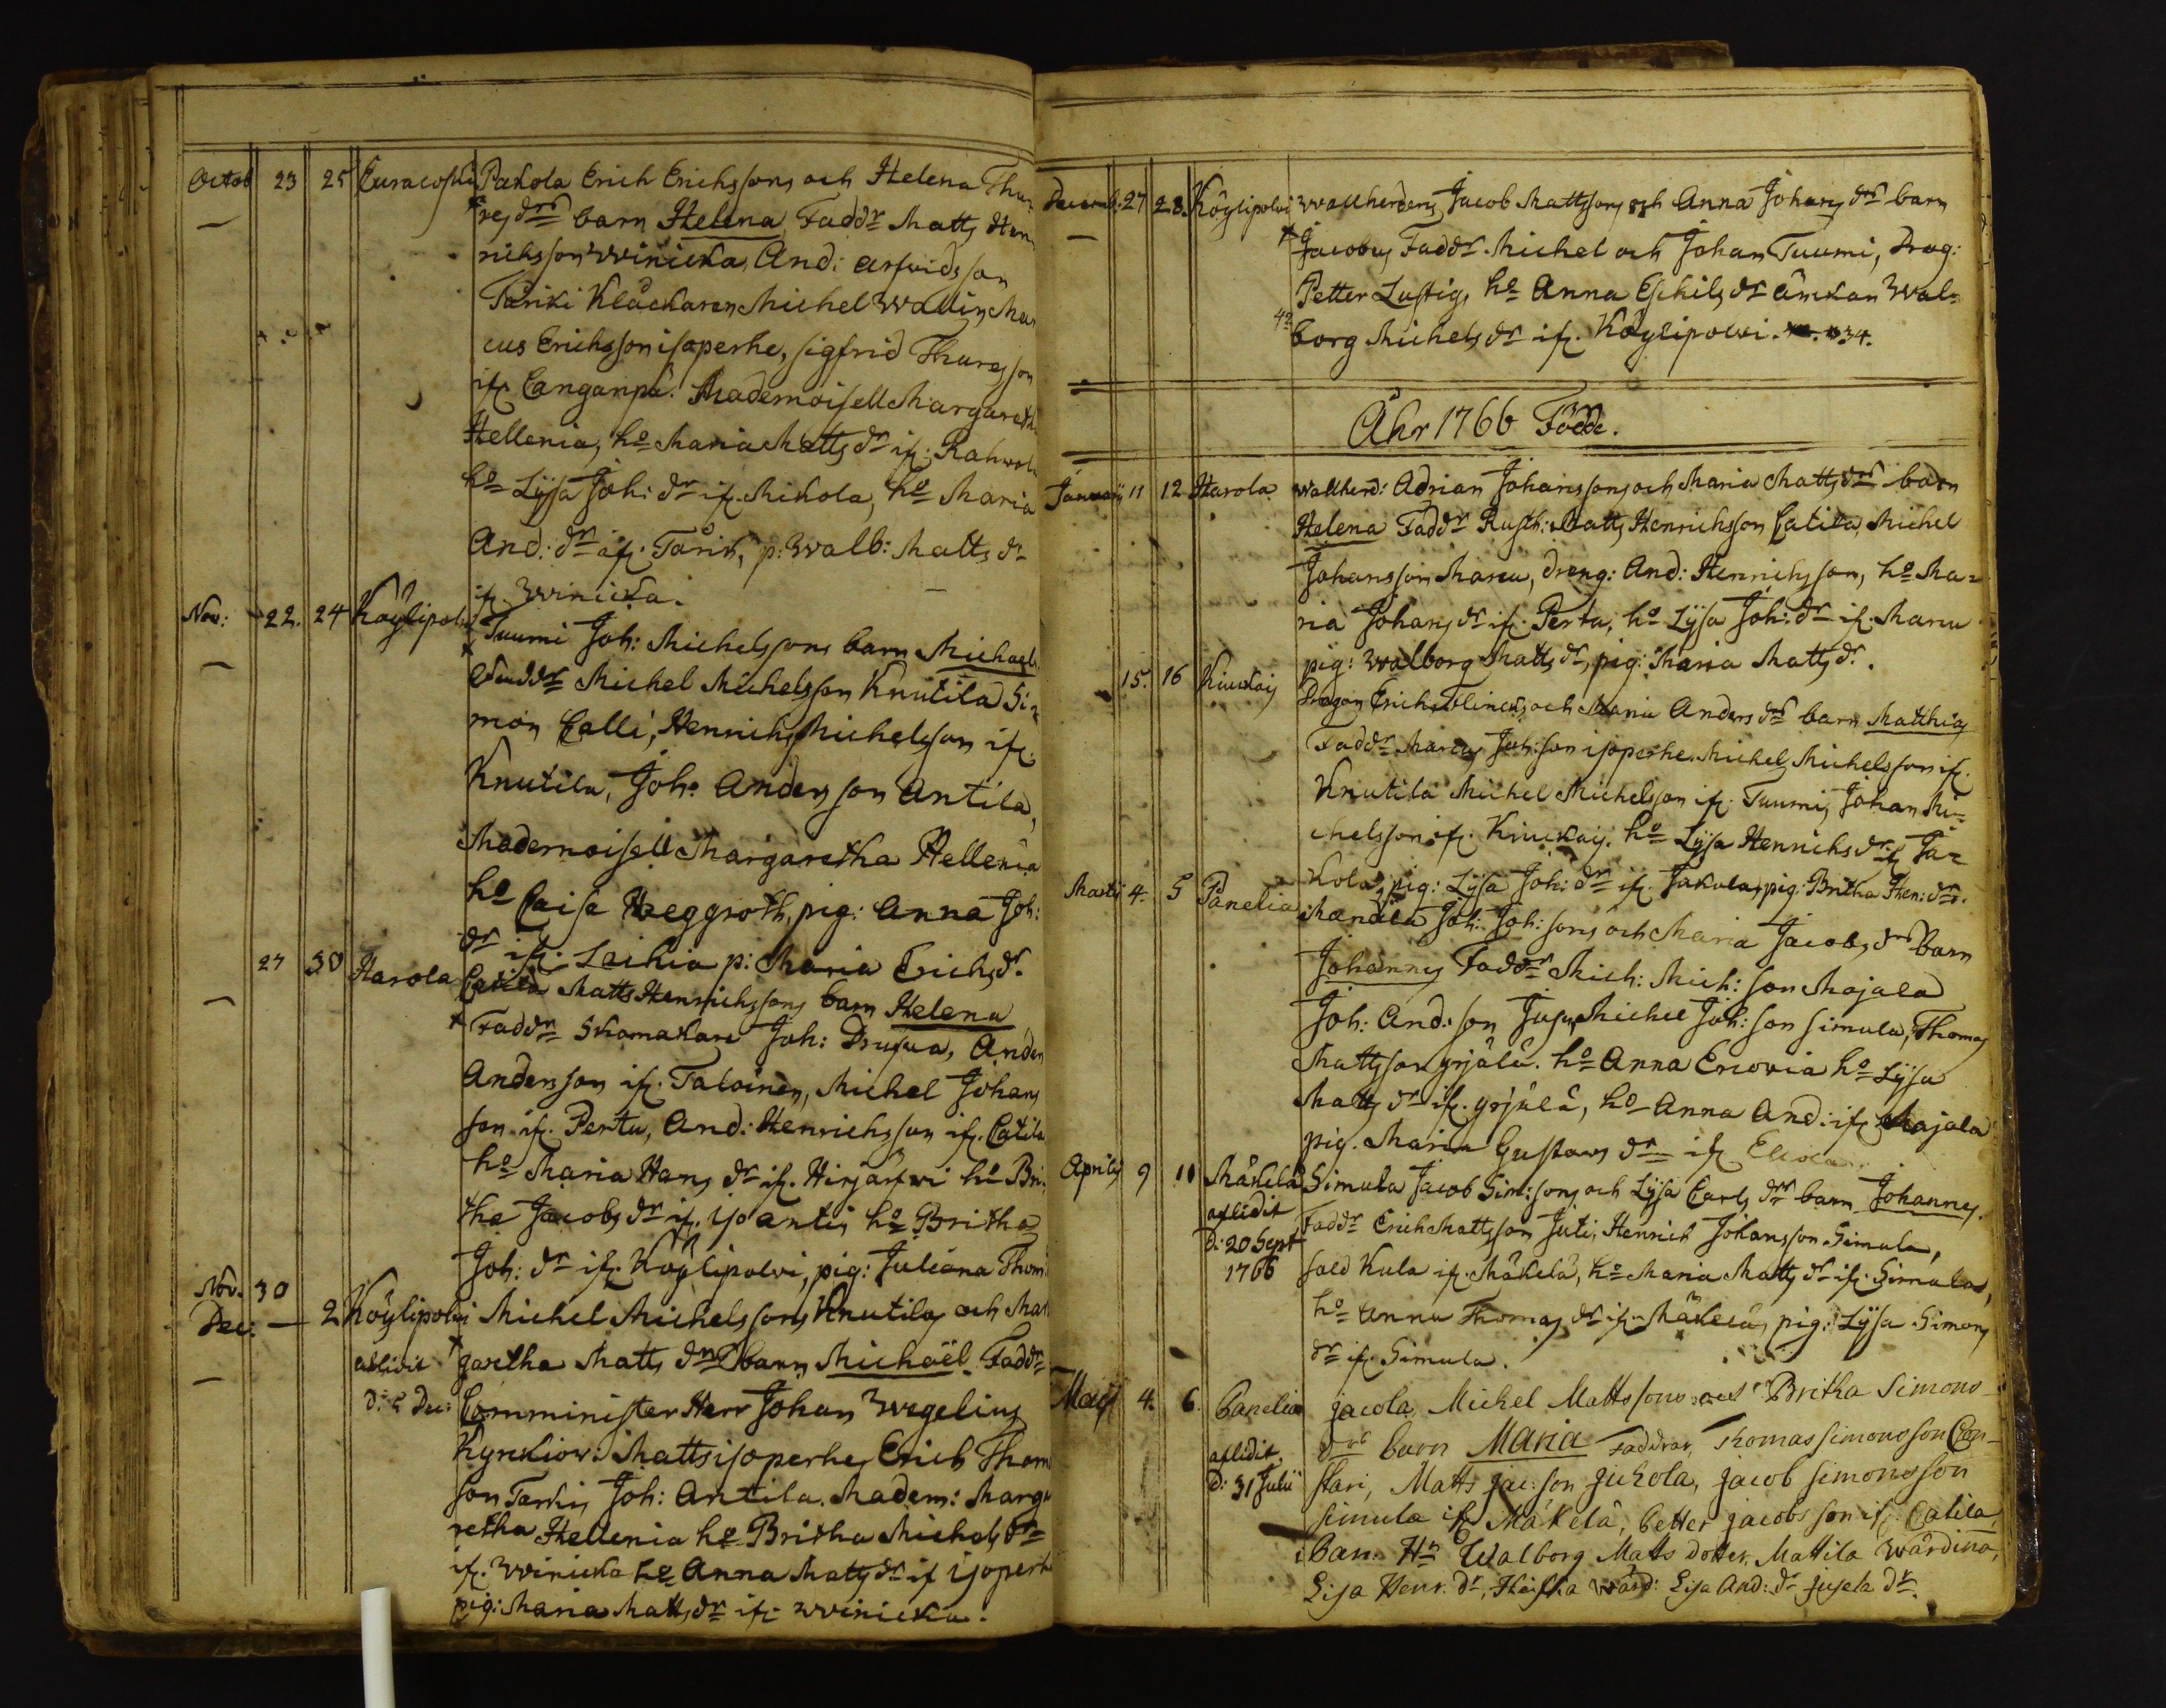 Octob 23 25 Euracoski Pakola Erich Erichssons och Helena Thu-
res drs barn Helena Faddr Matts Hen-
richsson Winicka, And: Arfvidsson
Täriki Klåckaren Michel Wallin, Mar-
cus Erichsson isoperhe, Sigfrid Thuresson
if. Canganpä. Mademoisell Margareth
Hellenia, ho Maria Matts dr if. Rahwola
ho Lÿsa Joh: dr if. Mikola, ho Maria
And: dr if. Tärik, p: Walb: Matts dr
if. Winicka.
Nov: 22. 24 Köylipolvi Tuumi Joh: Michelssons barn Michael
Faddr Michel Michelsson Knutila Si-
mon Calli, Henrich Michelsson if.
Knutila, Joh: Andersson Antila,
Mademoisell Margaretha Hellenia
ho Caisa Heggroth, pig: Anna Joh:
dr if. Laihia p: Maria Erichs dr.
27 30 Harola Catila Matts Henrichssons barn Helena
Faddr Skomakare Joh: Anders
Andersson if. Taloinen, Michel Johans
son if. Pertu, And: Henrichsson if. Catila
ho Maria Hans dr if. Hirjärfwi ho Bri-
tha Jacobs dr if. Yoantis ho Britha
Joh: dr if. Köylipolvi, pig: Juliana Thom:
Nov. 30
Dec: — 2 Köylipolvi Michel Michelssons Knutila och Mar-
aflidit garetha Matts drs barn Michaël. Faddr
d: Dec: Comminister Herr Johan Wegelius
Kyrkiow: Matts isoperhe, Erich Thom
son Tarkis, Joh: Antila. Madem: Marga
retha Hellenia ho Britha Michels dr
if. Winicka ho Anna Matts dr if isoperhe
pig: Maria Matts dr if. Winicka.
Decemb. 27 28. Köylipolvi Wallherdens Jacob Mattssons och Anna Johans dr barn
Jacobus Faddr. Michel och Johan Tuumi, Drag:
Petter Lustig, ho Anna Eskils dr änkan Wal-
borg Michels dr if. Köylipolvi. 34.
Åhr 1766 Födde.
Januarii 11 12 Harola Wallherd: Adrian Johanssons och Maria Matts drs barn
Helena Faddr Rusth: Matts Henrichsson Catila, Michel
Johansson Manu, dreng: And: Henrichsson, ho Ma-
ria Johans dr if. Pertu, ho Lÿsa Joh: dr if. Manu
pig: Walborg Matts dr, pig: Maria Matts dr.
15. 16 Kiukais Dragon Erich Flincks och Maria Anders drs barn Matthias
Faddr Marcus Joh:son isoperhe. Michel Michelsson if.
Knutila Michel Michelsson if. Tuumi, Johan Mi-
chelsson if. Kiukais. ho Lÿsa Henrichs dr if Ja-
kola, pig: Lÿsa Joh: dr if. Jakola, pig: Britha Hen: dr.
Martii 4. 5 Panelia Mandila Joh: Joh: sons och Maria Jacobs drs barn
Johannes Faddr Mich: Mich: son Majala
Joh: And: son Jusu, Michel Joh: son Simula, Thomas
Mattsson yrjälä. ho Anna Encovia ho Lÿsa
Matts dr if. yrjälä, ho Anna And: if Majala
pig. Maria Gustavs dr if
Aprilis 9 11 Mäkelä Simula Jacob Sim:sons och Lÿsa Carls drs barn Johannes.
aflidit Faddr Erich Mattsson Juti, Henrich Johansson Simula,
d: 20 Sept Sold Kula if. Mäkelä, ho Maria Matts dr if. Simula,
1766 ho Anna Thomas dr if. Mäkelä, pig: Lÿsa Simons
dr if. Simula.
Maij 4. 6. Panelia jacola Michel Mattssons och Britha Simons-
aflidit drs barn Maria Faddrar, Thomas Simonsson Con-
d: 31 Julii stari, Matts jac:son jickola, jacob Simonsson
Simula if Mäkelä, Petter jacobsson if Catila,
i Pan: Hn Walborg Matts dotter, Mattila Wärdina,
Lisa Henr: dr, Heicka Wärd: Lisa And: dr jusela dr.